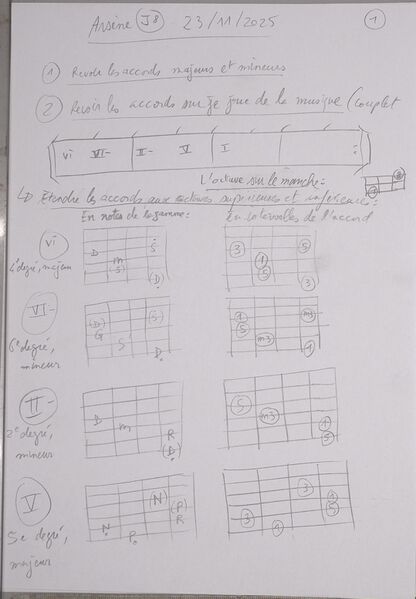 Arsène J8 23/11/2025 1
1 Revoir les accords majeurs et mineurs
2 Revoir les accords sur je joue de la musique (couplet
vi VI- II- V I :
L'octave sur le manche:
1
1
↳ Etendre les accords aux octaves supérieures et inférieures:
En notes de la gamme: En intervalles de l'accord
vi
4e degré, majeur
D m S S (D)
3 1 5 5 3
VI-
6e degré,
mineur
(D) G S (S) D
1 5 m3 m3 1
II-
2e degré,
mineur
D m R (D)
5 m3 1 5
V
5e degré,
majeur
N P (N) (P) R
3 1 3 1 5